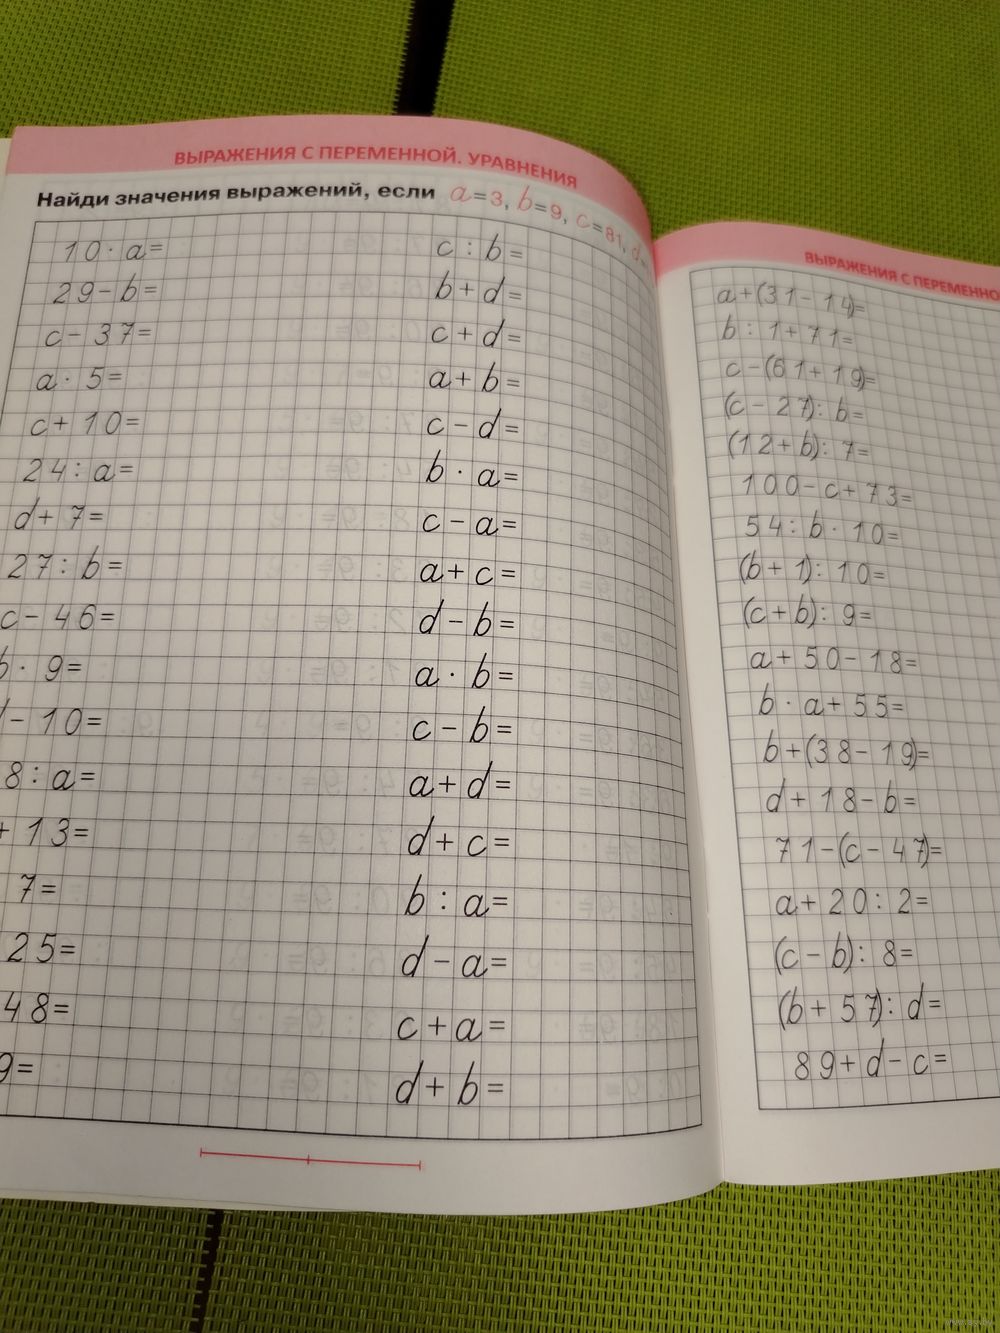 ВЫРАЖЕНИЯ С ПЕРЕМЕННОЙ. УРАВНЕНИЯ
Найди значения выражений, если a=3, b=9, c=81, d
10·a=
29-b=
c-37=
a·5=
c+10=
24:a=
d+7=
27:b=
c-46=
b·9=
-10=
8:a=
+13=
7=
25=
48=
9=
c:b=
b+d=
c+d=
a+b=
c-d=
b·a=
c-a=
a+c=
d-b=
a·b=
c-b=
a+d=
d+c=
b:a=
d-a=
c+a=
d+b=
ВЫРАЖЕНИЯ С ПЕРЕМЕННО
a+(31-14)=
b:1+71=
c-(61+19)=
(c-27):b=
(12+b):7=
100-c+73=
54:b·10=
(b+1):10=
(c+b):9=
a+50-18=
b·a+55=
b+(38-19)=
d+18-b=
71-(c-47)=
a+20:2=
(c-b):8=
(b+57):d=
89+d-c=